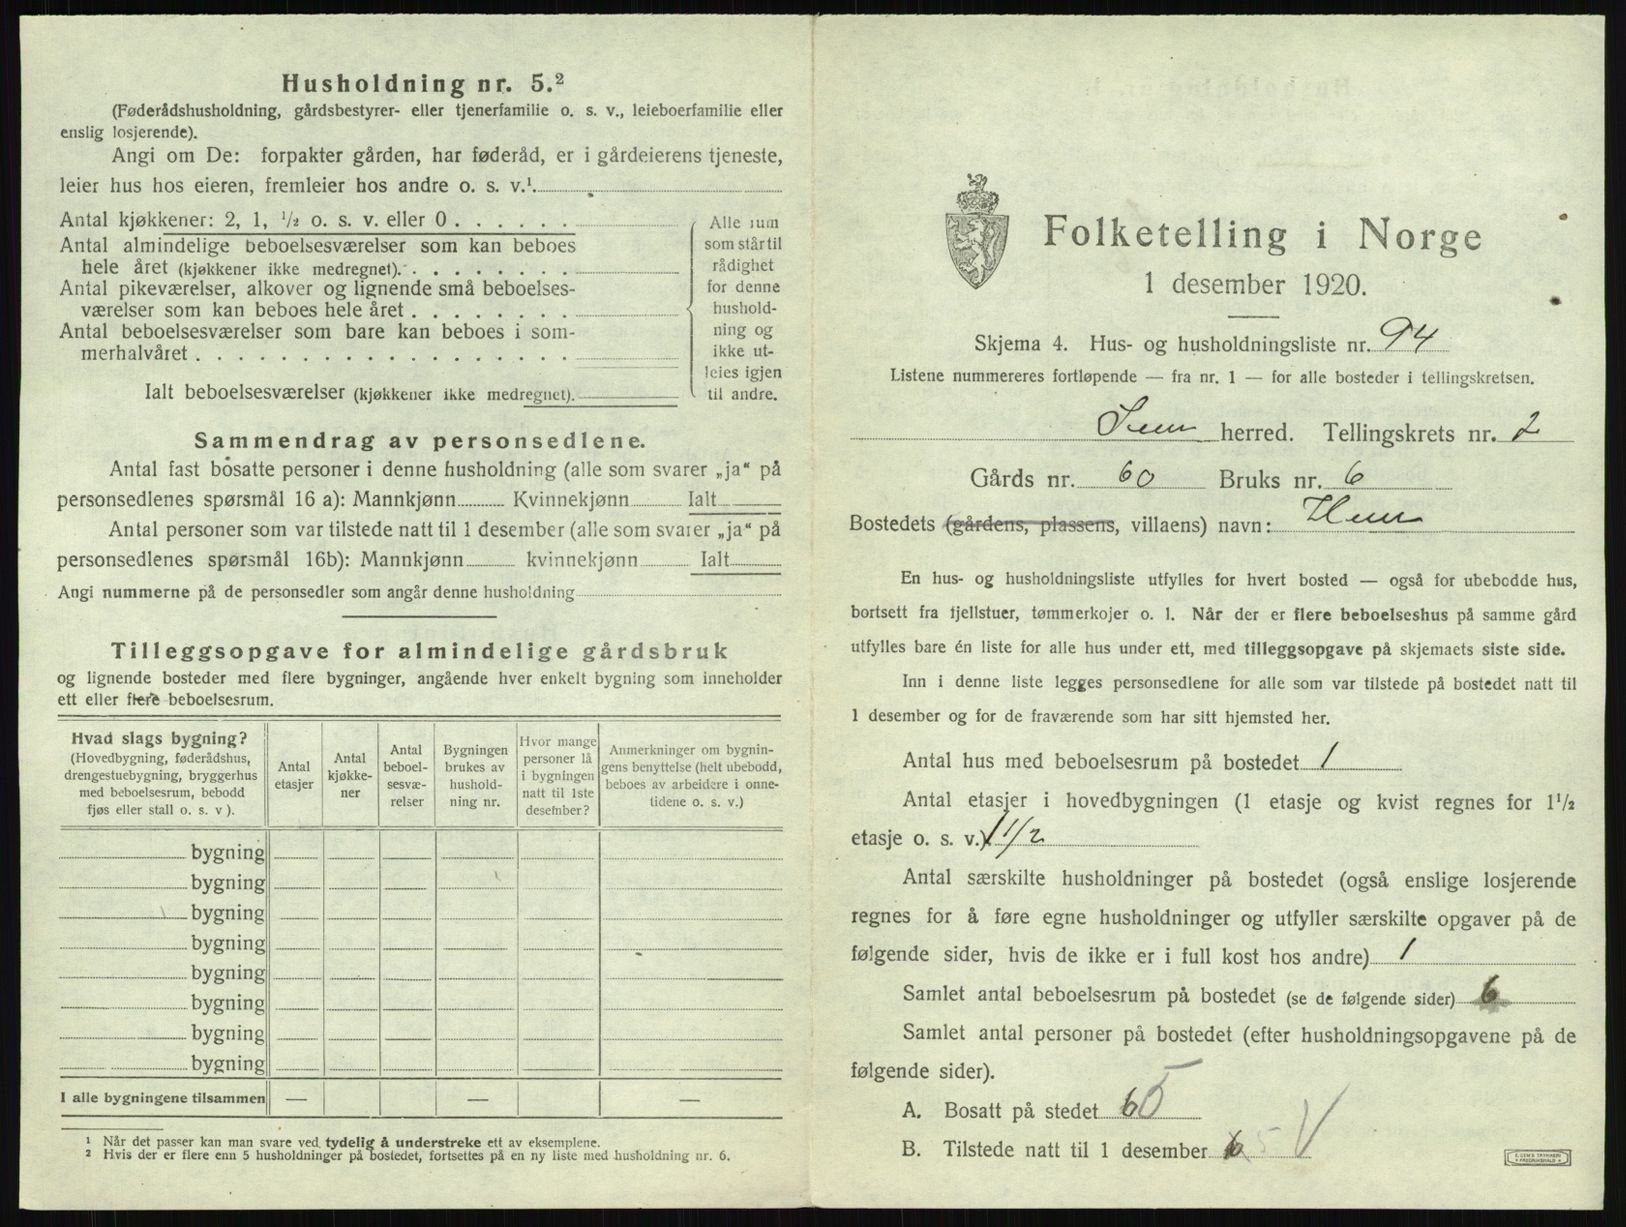 Husholdning nr. 5.²
(Føderådshusholdning, gårdsbestyrer- eller tjenerfamilie o. s. v., leieboerfamilie eller
enslig losjerende).
Angi om De: forpakter gården, har føderåd, er i gårdeierens tjeneste,
leier hus hos eieren, fremleier hos andre o. s. v.¹
Antal kjøkkener: 2, 1, ½ o. s. v. eller 0
Antal almindelige beboelsesværelser som kan beboes
hele året (kjøkkener ikke medregnet).
Antal pikeværelser, alkover og lignende små beboelses-
værelser som kan beboes hele året
Antal beboelsesværelser som bare kan beboes i som-
merhalvåret
Ialt beboelsesværelser (kjøkkener ikke medregnet).
Alle rum
som står til
rådighet
for denne
hushold-
ning og
ikke ut-
leies igjen
til andre.
Sammendrag av personsedlene.
Antal fast bosatte personer i denne husholdning (alle som svarer „ja“ på
personsedlenes spørsmål 16 a): Mannkjønn Kvinnekjønn Ialt
Antal personer som var tilstede natt til 1 desember (alle som svarer „ja“ på
personsedlenes spørsmål 16b): Mannkjønn kvinnekjønn Ialt
Angi nummerne på de personsedler som angår denne husholdning
Tilleggsopgave for almindelige gårdsbruk
og lignende bosteder med flere bygninger, angående hver enkelt bygning som inneholder
ett eller flere beboelsesrum.
Hvad slags bygning?
(Hovedbygning, føderådshus,
drengestuebygning, bryggerhus
med beboelsesrum, bebodd
fjøs eller stall o. s. v ).
Antal
etasjer
Antal
kjøkke-
ner
Antal
beboel-
sesvæ-
relser
Bygningen
brukes av
hushold-
ning nr.
Hvor mange
personer lå
i bygningen
natt til 1ste
desember?
Anmerkninger om bygnin-
gens benyttelse (helt ubebodd,
beboes av arbeidere i onne-
tidene o. s. v.)
bygning
bygning
bygning
bygning
bygning
bygning
bygning
bygning
I alle bygningene tilsammen — — —
¹ Når det passer kan man svare ved tydelig å understreke ett av eksemplene.
² Hvis der er flere enn 5 husholdninger på bostedet, fortsettes på en ny liste med husholdning nr. 6.
Folketelling i Norge
1 desember 1920.
Skjema 4. Hus- og husholdningsliste nr. 94
Listene nummereres fortløpende — fra nr. 1 — for alle bosteder i tellingskretsen.
Sem herred. Tellingskrets nr. 2
Gårds nr. 60 Bruks nr. 6
Bostedets (gårdens, plassens, villaens) navn: Hem
En hus- og husholdningsliste utfylles for hvert bosted — også for ubebodde hus,
bortsett fra fjellstuer, tømmerkojer o. l. Når der er flere beboelseshus på samme gård
utfylles bare én liste for alle hus under ett, med tilleggsopgave på skjemaets siste side.
Inn i denne liste legges personsedlene for alle som var tilstede på bostedet natt til
1 desember og for de fraværende som har sitt hjemsted her.
Antal hus med beboelsesrum på bostedet 1
Antal etasjer i hovedbygningen (1 etasje og kvist regnes for 1½
etasje o. s. v.) 1½
Antal særskilte husholdninger på bostedet (også enslige losjerende
regnes for å føre egne husholdninger og utfyller særskilte opgaver på de
følgende sider, hvis de ikke er i full kost hos andre) 1
Samlet antal beboelsesrum på bostedet (se de følgende sider) 6
Samlet antal personer på bostedet (efter husholdningsopgavene på de
følgende sider).
A. Bosatt på stedet 6 5
B. Tilstede natt til 1 desember 6 5